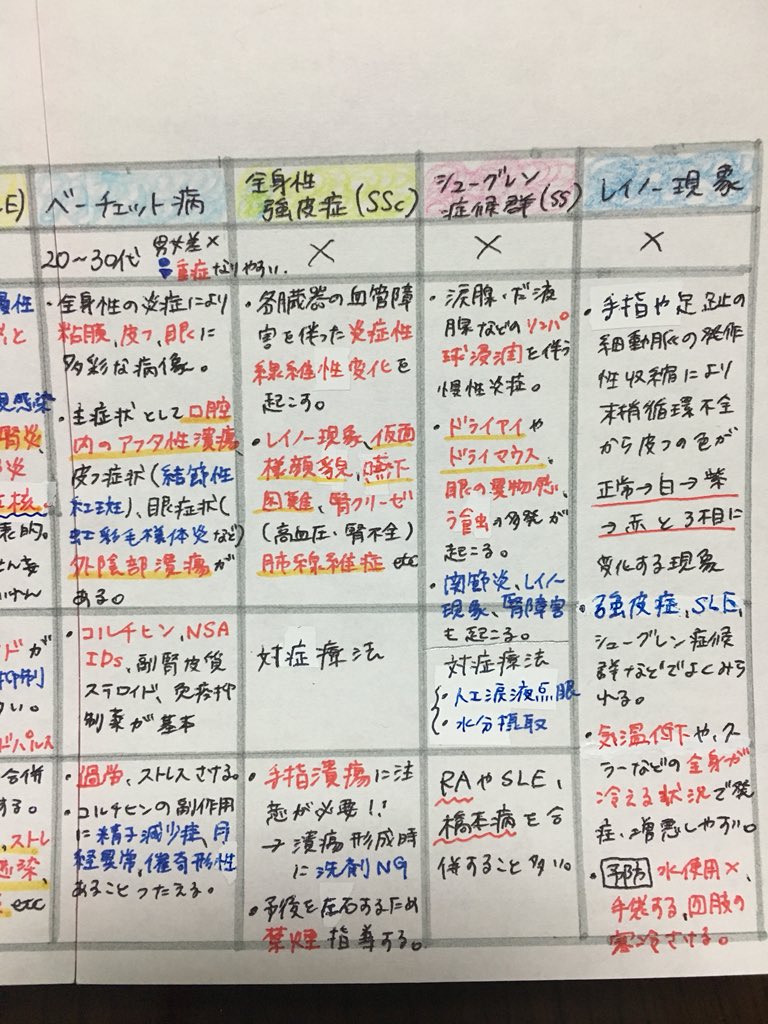 E)
慢性
炎と
現感染
腎炎
炎
核
表的。
ドが
抑制
ドパルス
合併
ある。
ストレ
感染
etc
ベーチェット病
20〜30代 男女差×
重症なりやすい.
・全身性の炎症により
粘膜、皮フ、眼に
多彩な病像。
・主症状として口腔
内のアフタ性潰瘍
皮フ症状(結節性
紅斑)、眼症状(
虹彩毛様体炎など)
外陰部潰瘍が
ある。
・コルチヒン、NSA
IDs、副腎皮質
ステロイド、免疫抑
制薬が基本
・過労、ストレスさける。
・コルチヒンの副作用
に精子減少症、月
経異常、催奇形性
あることつたえる。
全身性
強皮症(SSc)
×
・各臓器の血管障
害を伴った炎症性
線維性変化を
起こす。
・レイノー現象、仮面
様顔貌、嚥下
困難、腎クリーゼ
(高血圧・腎不全)
肺線維症 etc
対症療法
・手指潰瘍に注
意が必要!!
→潰瘍形成時
に洗剤NG
・予後を左右するため
禁煙指導する。
シェーグレン
症候群(SS)
×
・涙腺・だ液
腺などのリンパ
球浸潤を伴う
慢性炎症。
・ドライアイや
ドライマウス、
眼の異物感、
う食虫の多発が
起こる。
・関節炎、レイノー
現象、腎障害
も起こる。
対症療法
・人工涙液点眼
・水分摂取
RAやSLE、
橋本病を合
併すること多い。
レイノー現象
×
・手指や足趾の
細動脈の発作
性収縮により
末梢循環不全
から皮フの色が
正常→白→紫
→赤と3相に
変化する現象
・強皮症、SLE、
シェーグレン症候
群などでよくみら
れる。
・気温低下や、クー
ラーなどの全身が
冷える状況で発
症、増悪しやすい。
・予防 水使用×、
手袋する、四肢の
寒冷さける。